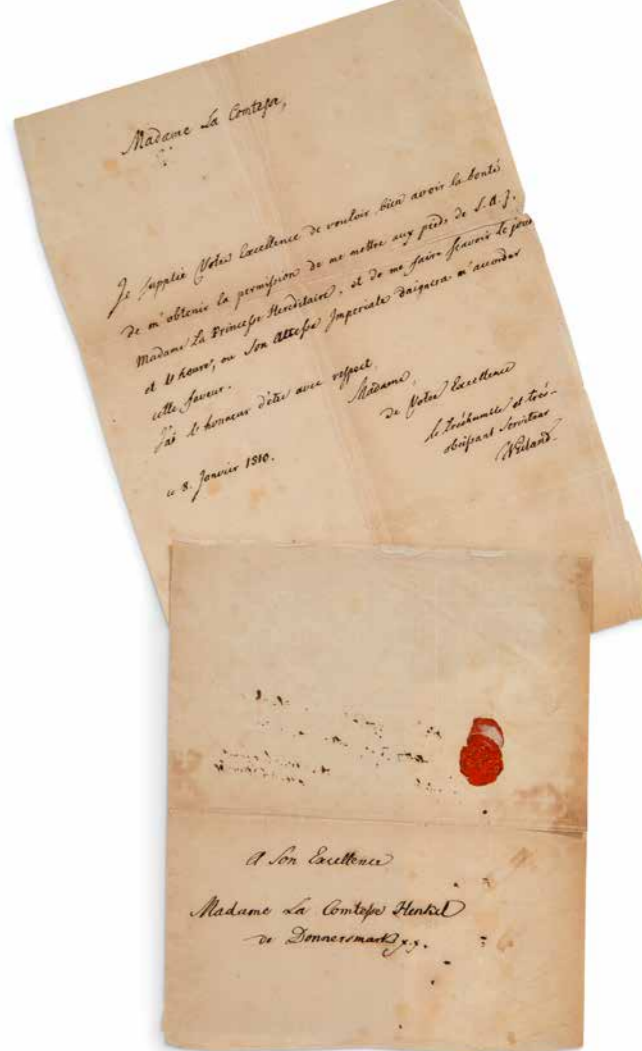 Madame La Comtesse,
Je supplie Votre Excellence de vouloir bien avoir la bonté
de m'obtenir la permission de me mettre aux pieds de S. A. J.
Madame La Princesse Hereditaire, et de me faire sçavoir le jour
et l'heure, ou Son Altesse Imperiale daignera m'accorder
cette faveur.
J'ai l'honneur d'être avec respect,
Madame,
de Votre Excellence
le tréshumble et trés-
obéissant Serviteur
Weiland.
ce 8. Janvier 1810.
A Son Excellence
Madame La Comtesse Henkel
de Donnersmark